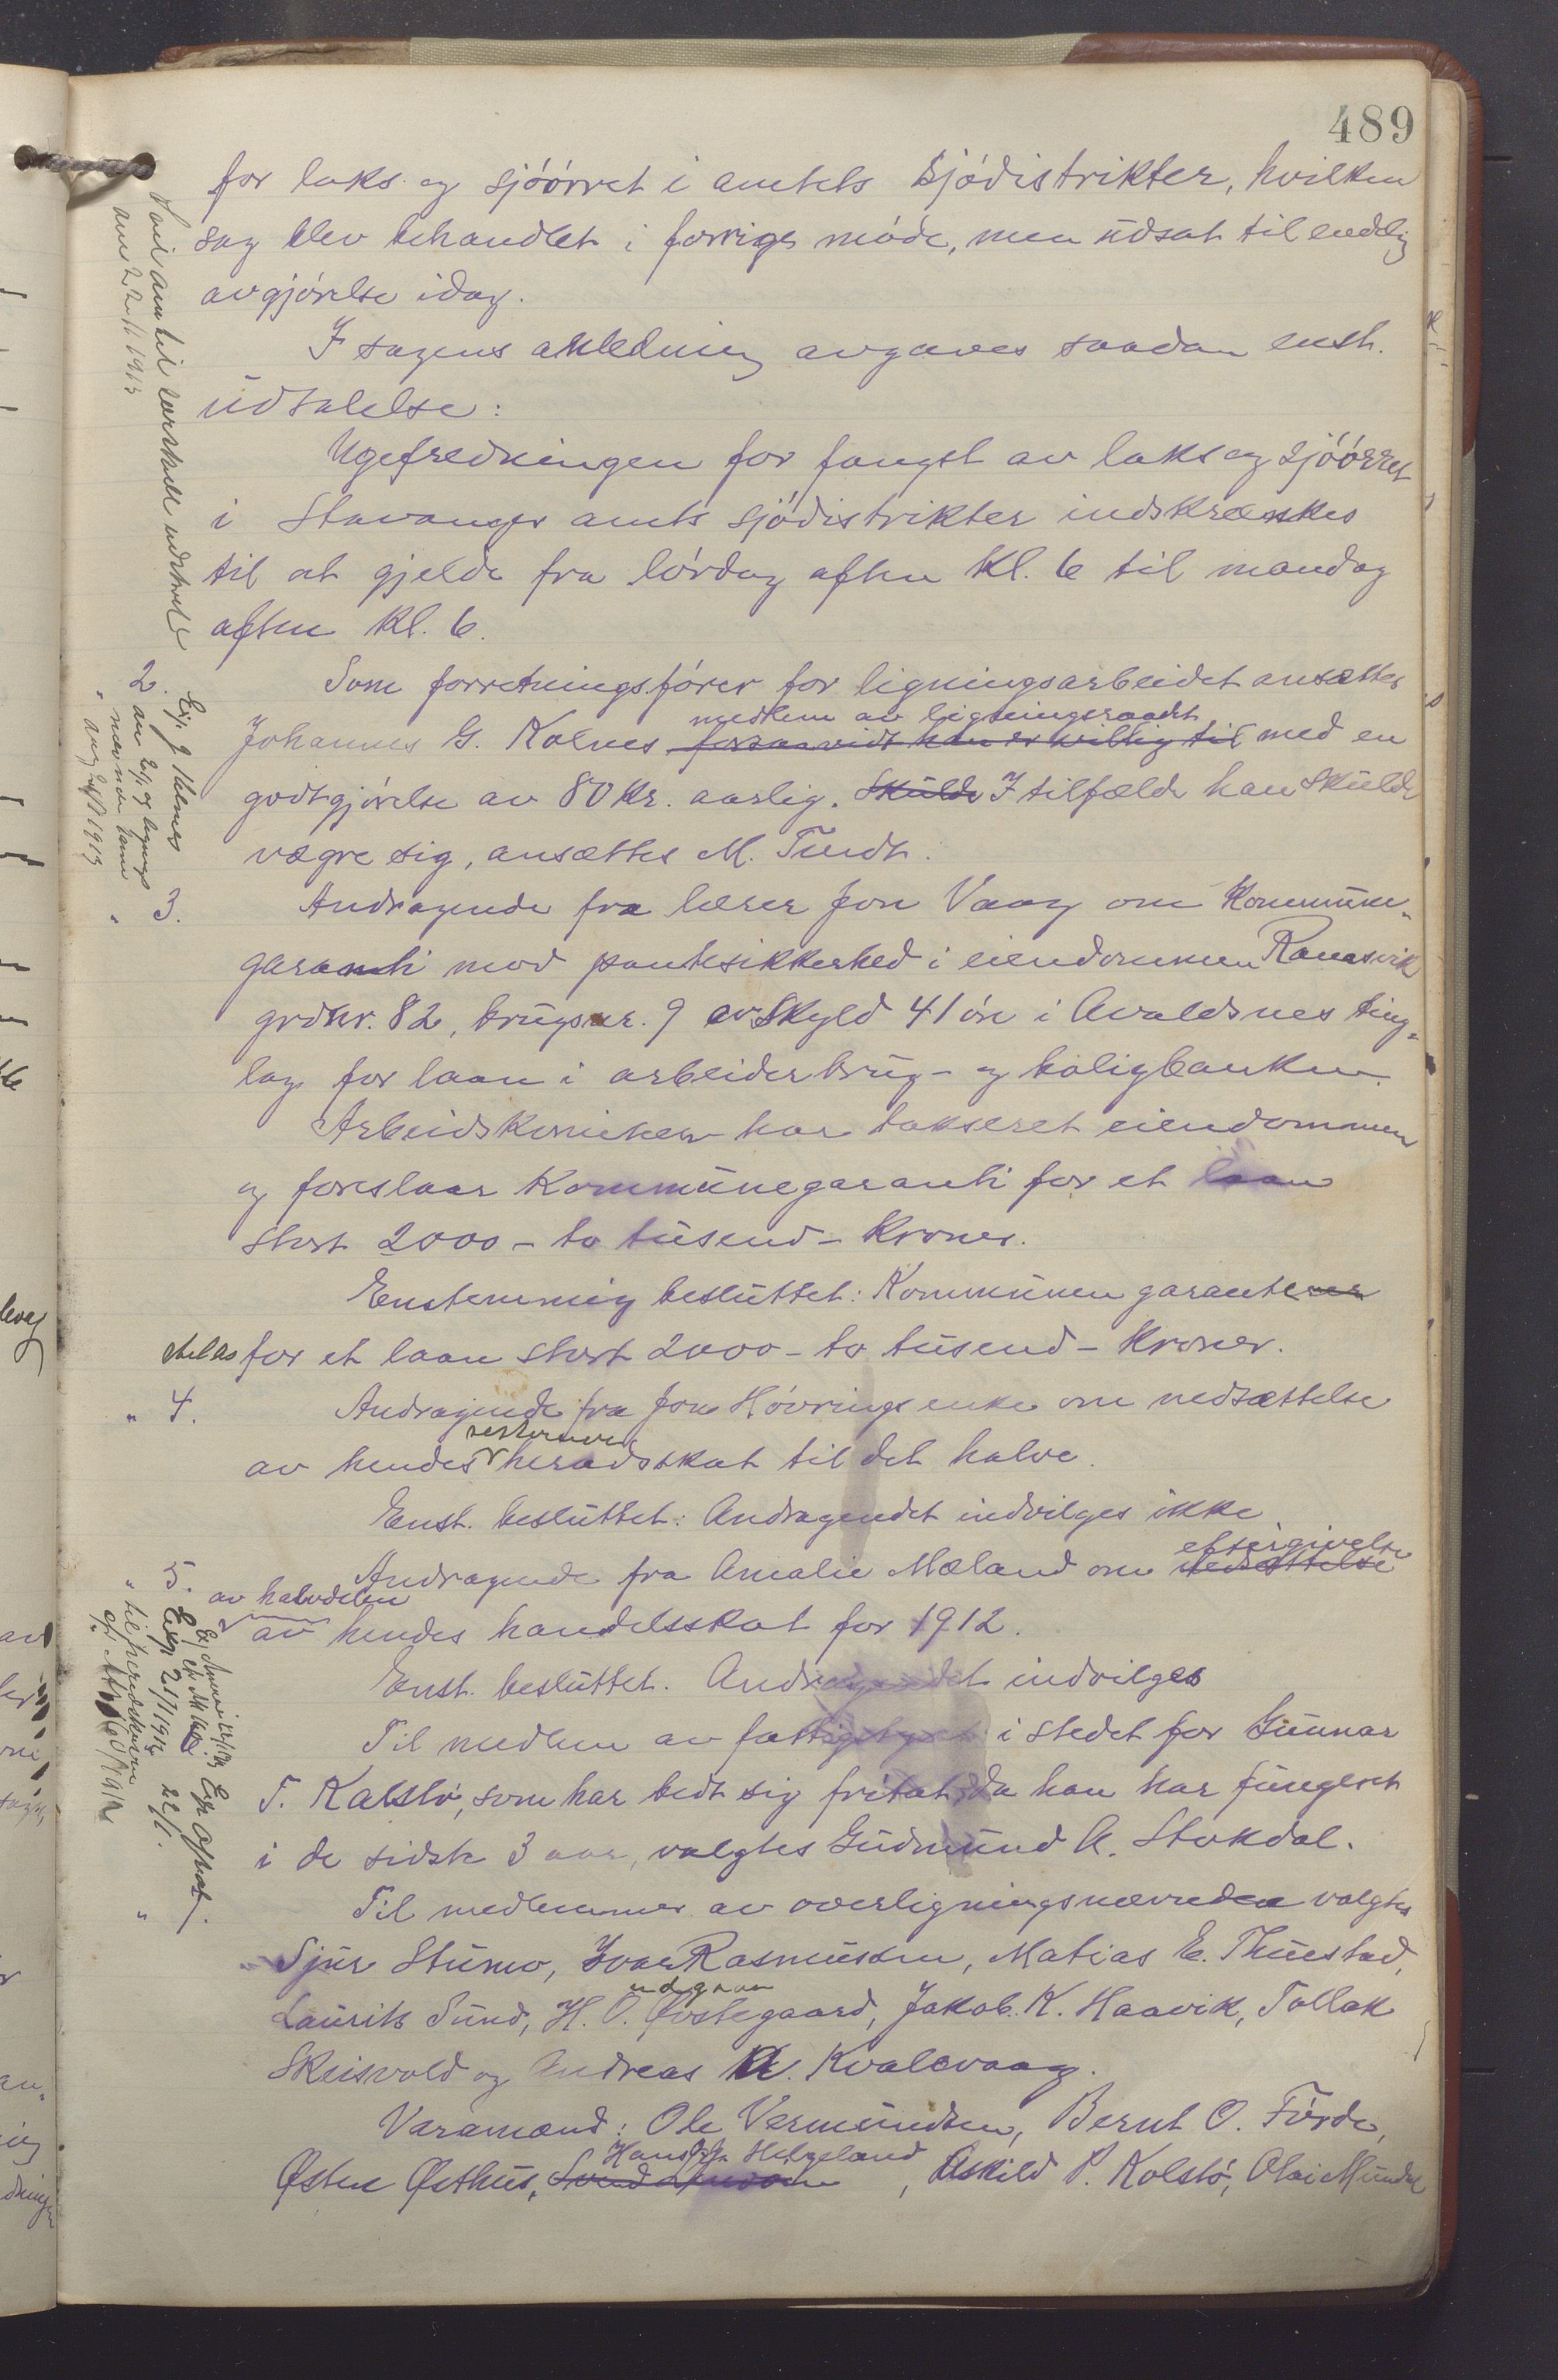 489
for laks og sjöörret i amtets Sjödistrikter, hvilken
sag blev behandlet i forrige möde, men udsat til endelig
avgjörelse idag.
I sagens anledning avgaves saadan enst.
udtalelse:
Ugefredningen for fangst av laks og sjöörret
i Stavanger amts sjödistrikter indskrænkes
til at gjelde fra lördag aften Kl. 6 til mandag
aften Kl. 6.
2. Som forretningsförer for ligningsarbeidet ansættes
medlem av ligningsraadet
Johannes G. Kolnes forsaavidt han er willig til med en
godtgjörelse av 80 Kr. aarlig. Skulde I tilfælde han Skulde
vægre sig, ansættes M. Tendt.
" 3. Andragende fra lærer Jon Vaag om Kommune-
garanti mod pantesikkerhed i eiendommen Ramsvik
grdnr. 82, brugsnr. 9 av Skyld 41 öre i Avaldsnes ting-
lag for laan i arbeiderbrug- og boligbanken.
Arbeidskomiteen har takseret eiendommen
og foreslaar Kommunegaranti for et laan
stort 2000 - to tusend - Kroner.
Enstemmig besluttet: Kommunen garanterer
for et laan stort 2000 - to tusend - Kroner.
" 4. Andragende fra Jon Hövrings enke om nedsættelse
resterende
av hendes heradsskat til det halve.
Enst. besluttet: Andragendet indvilges ikke
eftergivelse
5. Andragende fra Amalie Mæland om nedsættelse
av halvdelen
av hendes handelsskat for 1912.
Enst. besluttet. Andragendet indvilges
Til medlem av fattigstyret i stedet for Gunnar
T. Kalstö, som har bedt sig fritat, da han har fungeret
i de sidste 3 aar, valgtes Gudmund A. Stokdal.
" Til medlemmer av overligningsnævnden valgtes
Sjur Stumo, Ivar Rasmussen, Matias E. Thuestad,
udgaar
Laurits Sund, H. O. Östegaard, Jakob K. Haavik, Tollak
Skeisvold og Andreas A. Kvalevaag.
Varamænd: Ole Vermundsen, Bernt O. Förde,
Hans J. Helgeland
Østen Østhus, , Askild P. Kolstö, Olai Munde